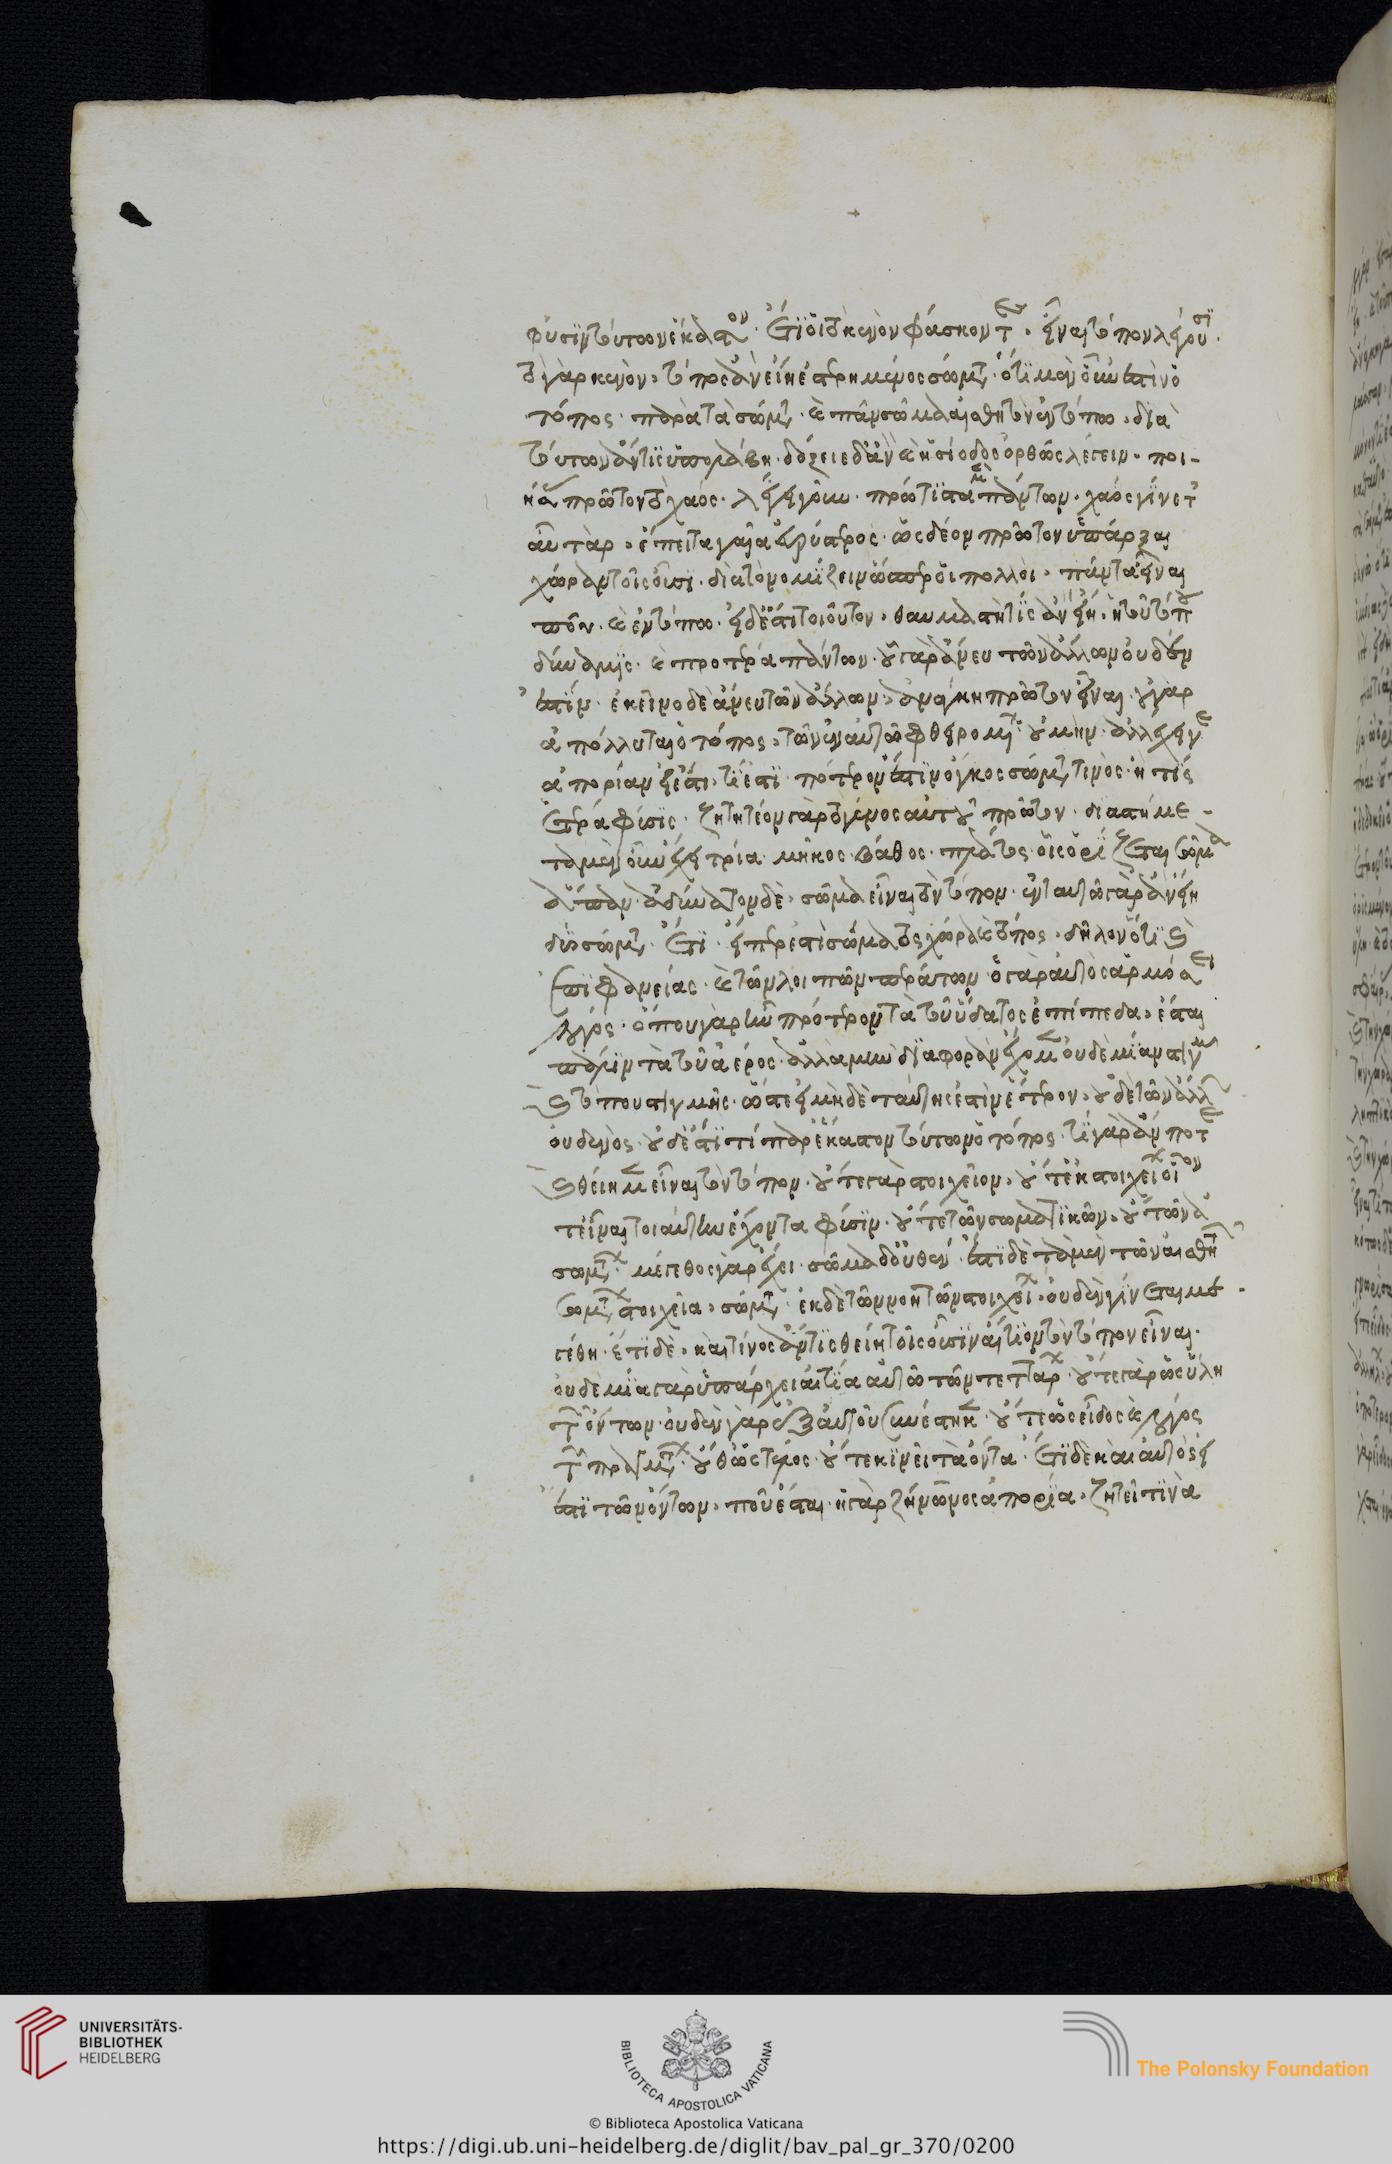 φύσιν τούτων ἕκαστον· ἔτι οἱ τὸ κενὸν φάσκοντες· εἶναι τόπον λέγουσι·
τὸ γὰρ κενὸν, τόπος ἂν εἴη ἐστερημένος σώματος· ὅτι μὲν οὖν ἐστί τι ὁ
τόπος παρὰ τὰ σώματα· καὶ πᾶν σῶμα αἰσθητὸν ἐν τόπω, διὰ
τούτων ἄν τις ὑπολάβη· δόξειε δ' ἂν καὶ ἡσίοδος ὀρθῶς λέγειν· ποι-
ήσας πρῶτον τὸ χάος· λέγει γοῦν· πρώτιστα μὲν πάντων· χάος γένετ'
αὐτὰρ, ἔπειτα γαῖα εὐρύστερος· ὡς δέον πρῶτον ὑπάρξαι
χώραν τοῖς οὖσι· διὰ τὸ νομίζειν ὥσπερ οἱ πολλοὶ, πάντα εἶναι
που· καὶ ἐν τόπω· εἰ δέ ἐστι τοιοῦτον, θαυμαστή τις ἂν εἴη, ἡ τοῦ τόπου
δύναμις· καὶ προτέρα πάντων· οὗ γὰρ ἄνευ τῶν ἄλλων οὐδὲν
ἐστίν· ἐκεῖνο δὲ ἄνευ τῶν ἄλλων, ἀνάγκη πρῶτον εἶναι· οὐ γὰρ
ἀπόλλυται ὁ τόπος, τῶν ἐν αὐτῶ φθειρομένων· οὐ μὴν ἀλλ' ἔχει γε
ἀπορίαν εἰ ἔστι, τί ἐστι· πότερον ἐστιν ὄγκος σώματος τινὸς· ἤ τις
ἑτέρα φύσις· ζητητέον γὰρ τὸ γένος αὐτοῦ πρῶτον· διαστήμα-
τα μὲν οὖν ἔχει τρία· μῆκος· βάθος· πλάτος· οἷς ὁρίζεται σῶμα
ἅπαν· ἀδύνατον δὲ, σῶμα εἶναι τὸν τόπον· ἐν ταυτῶ γὰρ ἂν εἴη
δύο σώματα· ἔτι εἴπερ ἐστὶ σώματος χώρα καὶ τόπος, δῆλον ὅτι καὶ
ἐπιφανείας· καὶ τῶν λοιπῶν περάτων· ὁ γὰρ αὐτὸς ἁρμόσει
λόγος· ὅπου γὰρ ἦν πρότερον τὰ τοῦ ὕδατος ἐπίπεδα, ἔσται
πάλιν τὰ τοῦ ἀέρος· ἀλλὰ μὴν διαφορὰν ἔχομεν οὐδεμίαν στιγμῆς
καὶ τόπου στιγμῆς· ὥστε εἰ μηδὲ ταύτης ἐστὶν ἕτερον, οὐδὲ τῶν ἄλλων
οὐδενὸς· οὐδέ ἐστί τι παρ' ἕκαστον τούτων ὁ τόπος· τί γὰρ ἄν ποτε
καὶ θείημεν εἶναι τὸν τόπον· οὔτε γὰρ στοιχεῖον, οὔτ' ἐκ στοιχείων οἷόν
τε εἶναι τοιαύτην ἔχοντα φύσιν· οὔτε τῶν σωματικῶν, οὔτε τῶν ἀ
σωμάτων· μέγεθος γὰρ ἔχει· σῶμα δ' οὐθέν· ἔστι δὲ τὰ μὲν τῶν αἰσθητῶν
σωμάτων στοιχεῖα, σώματα· ἐκ δὲ τῶν νοητῶν στοιχείων, οὐδὲν γίνεται μέ-
γεθος· ἔτι δὲ, καὶ τίνος ἄν τις θείη τοῖς οὖσιν αἴτιον τὸν τόπον εἶναι·
οὐδεμία γὰρ ὑπάρχει αἰτία αὐτῶ τῶν τεττάρων· οὔτε γὰρ ὡς ὕλη
τῶν ὄντων· οὐδὲν γὰρ ἐξ αὐτοῦ συνέστηκεν· οὔτε ὡς εἶδος καὶ λόγος
τῶν πραγμάτων· οὔθ' ὡς τέλος· οὔτε κινεῖ τὰ ὄντα· ἔτι δὲ καὶ αὐτὸς εἰ
ἔστι τῶν ὄντων, ποῦ ἔσται· ἡ γὰρ ζήνωνος ἀπορία, ζητεῖ τινὰ
UNIVERSITÄTS-
BIBLIOTHEK
HEIDELBERG
BIBLIOTECA APOSTOLICA VATICANA
The Polonsky Foundation
© Biblioteca Apostolica Vaticana
https://digi.ub.uni-heidelberg.de/diglit/bav_pal_gr_370/0200